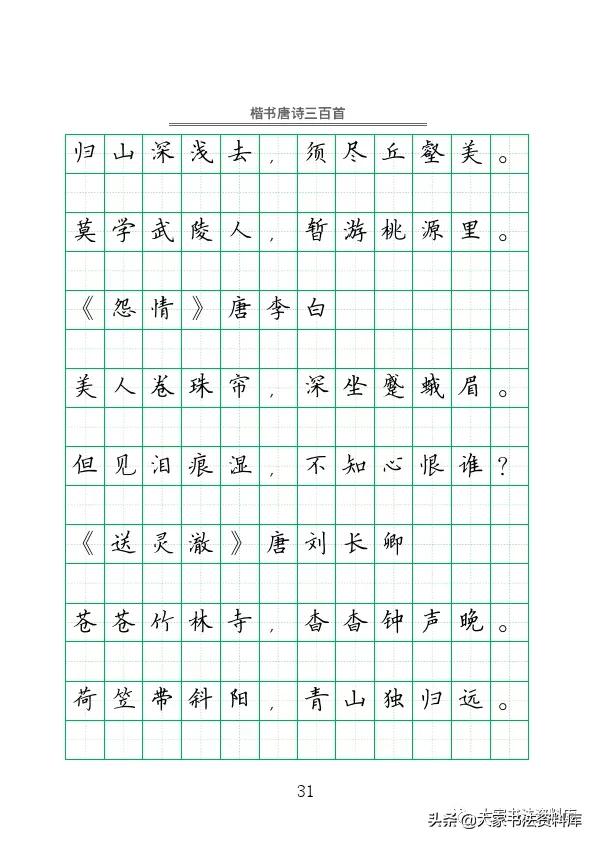 楷书唐诗三百首
归山深浅去，须尽丘壑美。
莫学武陵人，暂游桃源里。
《怨情》唐李白
美人卷珠帘，深坐蹙蛾眉。
但见泪痕湿，不知心恨谁？
《送灵澈》唐刘长卿
苍苍竹林寺，杳杳钟声晚。
荷笠带斜阳，青山独归远。
31
大家书法资料库
头条@大家书法资料库